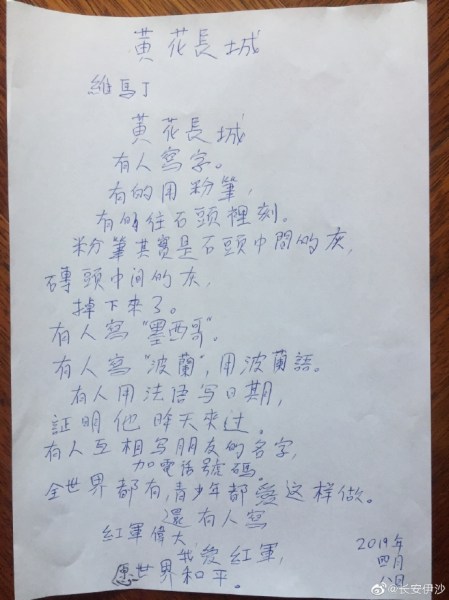 黃花長城
維馬丁
黃花長城
有人寫字。
有的用粉筆,
有的往石頭裡刻。
粉筆其實是石頭中間的灰,
磚頭中间的灰,
掉下來了。
有人寫"墨西哥"。
有人寫"波蘭",用波蘭語。
有人用法语写日期,
証明他昨天来过。
有人互相写朋友的名字,
加電话號碼。
全世界都有,青少年都愛这样做。
還有人寫
紅軍偉大,
我爱紅軍,
愿世界和平。
2019年
四月
八日
@长安伊沙